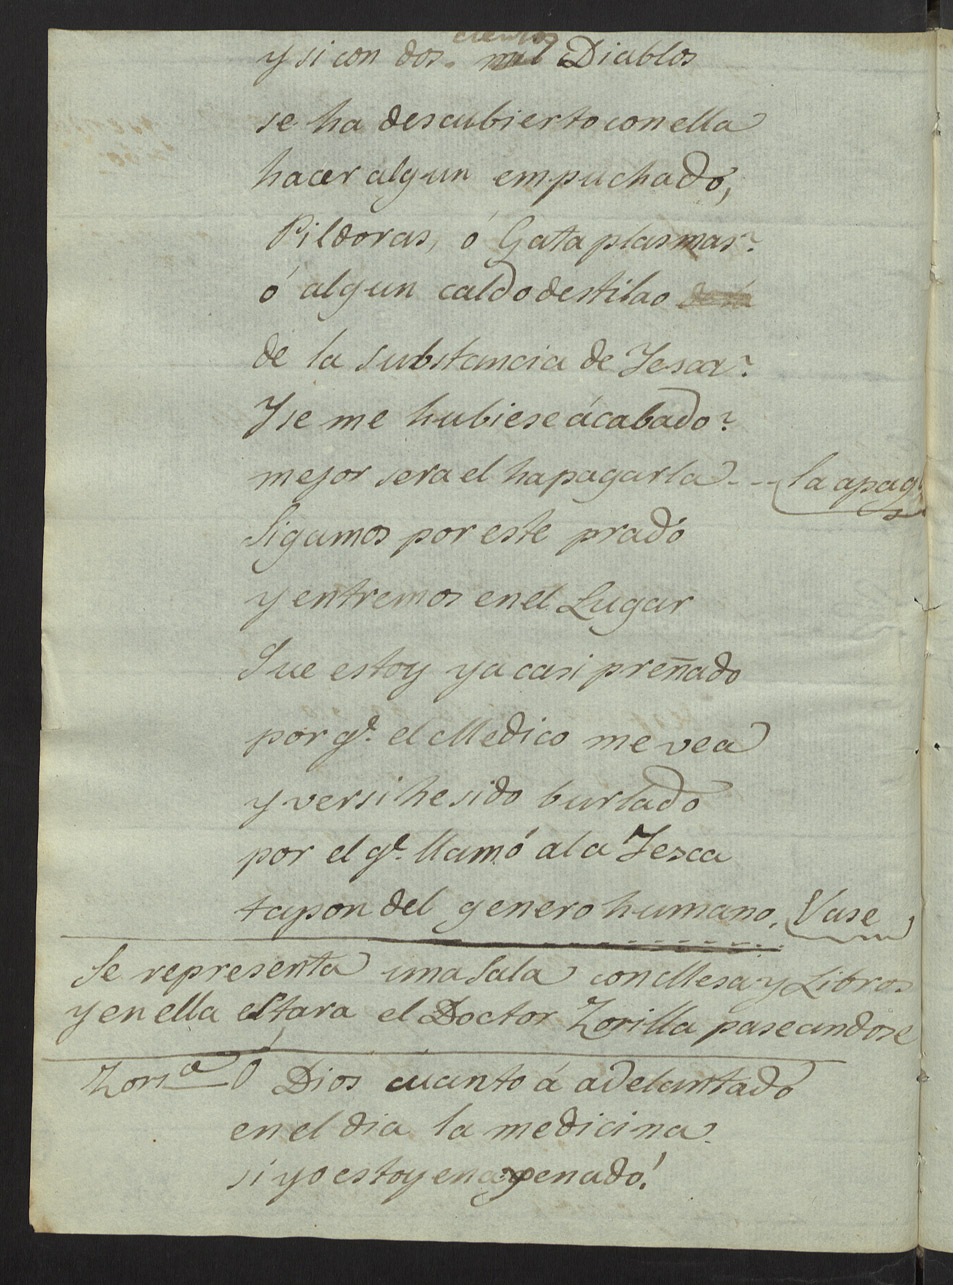 y si con dos cientos mil Diablos
se ha descubierto con ella
hacer algun empuchado,
Pildoras, ó Gataplasmas?
ó algun caldo destilao de la
de la substancia de Yesca?
Y se me hubiese ácabado?
mejor sera el hapagarla - - - la apag
Sigamos por este prado
y entremos en el Lugar
Que estoy ya casi preñado
por q.e el Medico me vea
y ver si he sido burlado
por el q.e llamó a la Yesca
tapon del genero humano. Vase
Se representa una Sala con Mesa y Libros
y en ella estara el Doctor Zorilla paseandose
Zori.a O Dios cuanto á adelantado
en el dia la medicina
si yo estoy enagenado!